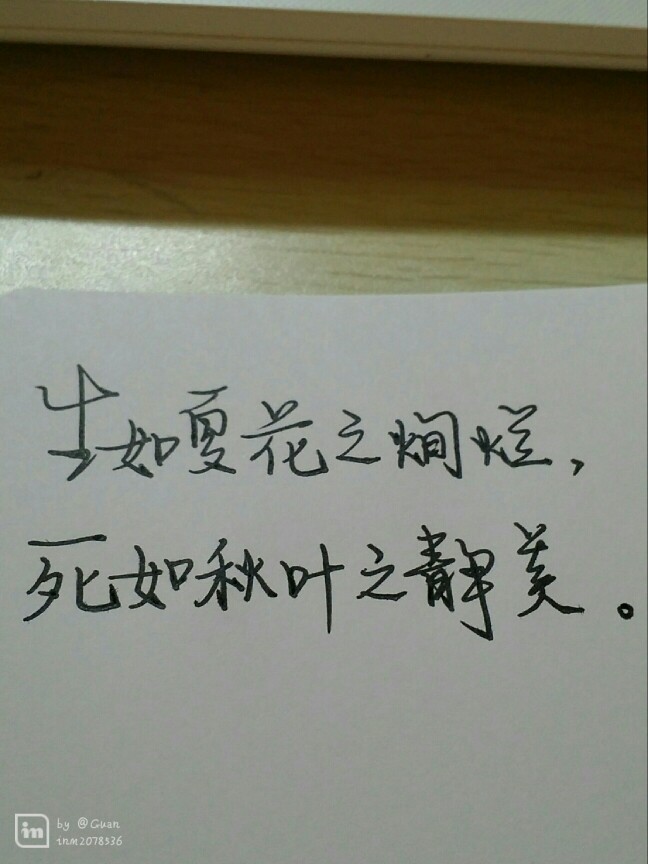 生如夏花之烂烂,
死如秋叶之静美。
in by @Guan
inm2078336